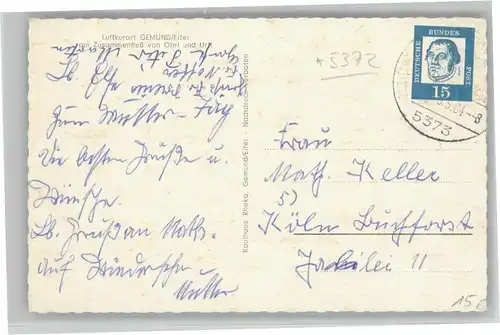 Luftkurort GEMÜND/Eifel
am Zusammenfluß von Olef und Urft
Lb. Else
zum Mutter-Tag
die besten Grüße u.
Wünsche.
Lb. Gruß an Math.
Auf Wiedersehn
Mutter
Kaufhaus Rheka, Gemünd/Eifel - Nachdruck verboten
+5372
DEUTSCHE BUNDES POST
15
5373
Frau
Math. Keller
5)
Köln Buchforst
11
15